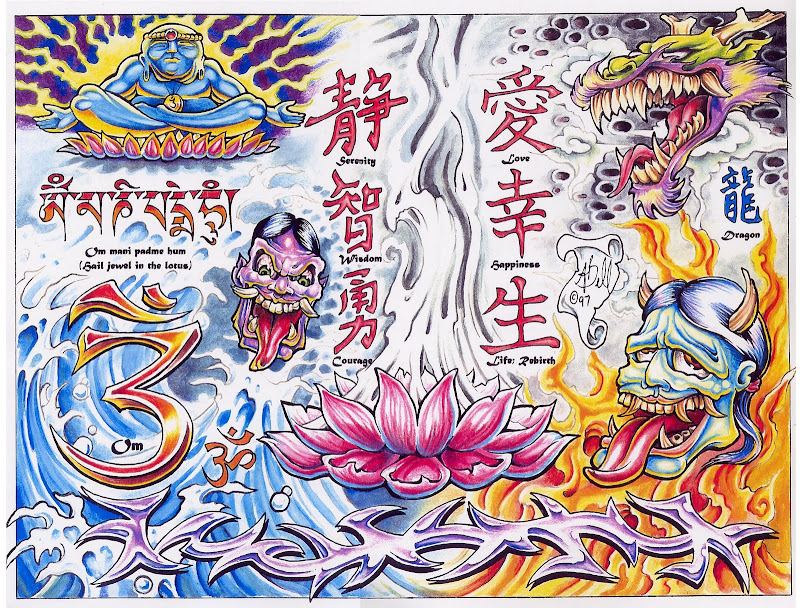 静
Serenity
智
Wisdom
勇
Courage
愛
Love
幸
Happiness
生
Life: Rebirth
龍
Dragon
Om mani padme hum
(Hail jewel in the lotus)
Om
ॐ
©97